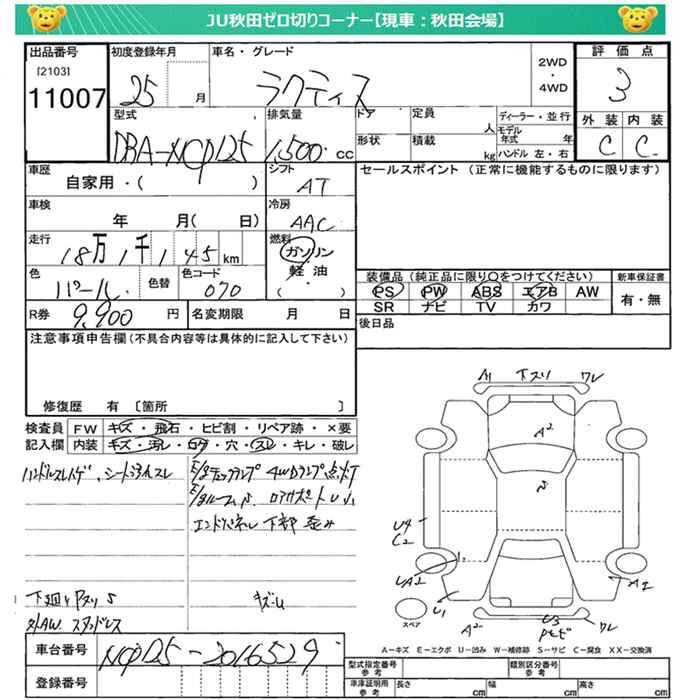 JU秋田ゼロ切りコーナー【現車：秋田会場】
出品番号 初度登録年月 車名・グレード 評価点
[2103] 11007 25 月 ラクティス 2WD・4WD 3
型式 排気量 ドア 定員 人 ディーラー・並行 外装 内装
DBA-NCP125 1,500 cc 形状 積載 kg モデル年式 年 ハンドル 左・右 C C
車歴 シフト セールスポイント（正常に機能するものに限ります）
自家用・( ) AT
車検 冷房
年 月( 日) AAC
走行 燃料
18万1千145km ガソリン
色 色替 色コード 軽油
パール 070 ( ・ )
装備品（純正品に限り○をつけてください） 新車保証書
PS PW ABS エアB AW 有・無
SR ナビ TV カワ
R券 9,900 円 名変期限 月 日
後日品
注意事項申告欄（不具合内容等は具体的に記入して下さい）
修復歴 有 〔箇所 〕
検査員 FW キズ・飛石・ヒビ割・リペア跡・×要
記入欄 内装 キズ・汚レ・コゲ・穴・スレ・キレ・破レ
ハンドルスレハゲ、シート汚れスレ
4WDランプ点灯
エンドパネル下部歪み
下廻りサビ S
キズU
外AW. スタッドレス
車台番号 NCP125-2016529
登録番号
A1 下スリ ワレ
A2
S
U4
C2
UA2
U1
A2
A2
U3
ワレ
スペア
A-キズ E-エクボ U-凹み W-補修跡 S-サビ C-腐食 XX-交換済
型式指定番号 参考 類別区分番号 参考
車庫証明用 参考 長さ cm 幅 cm 高さ cm